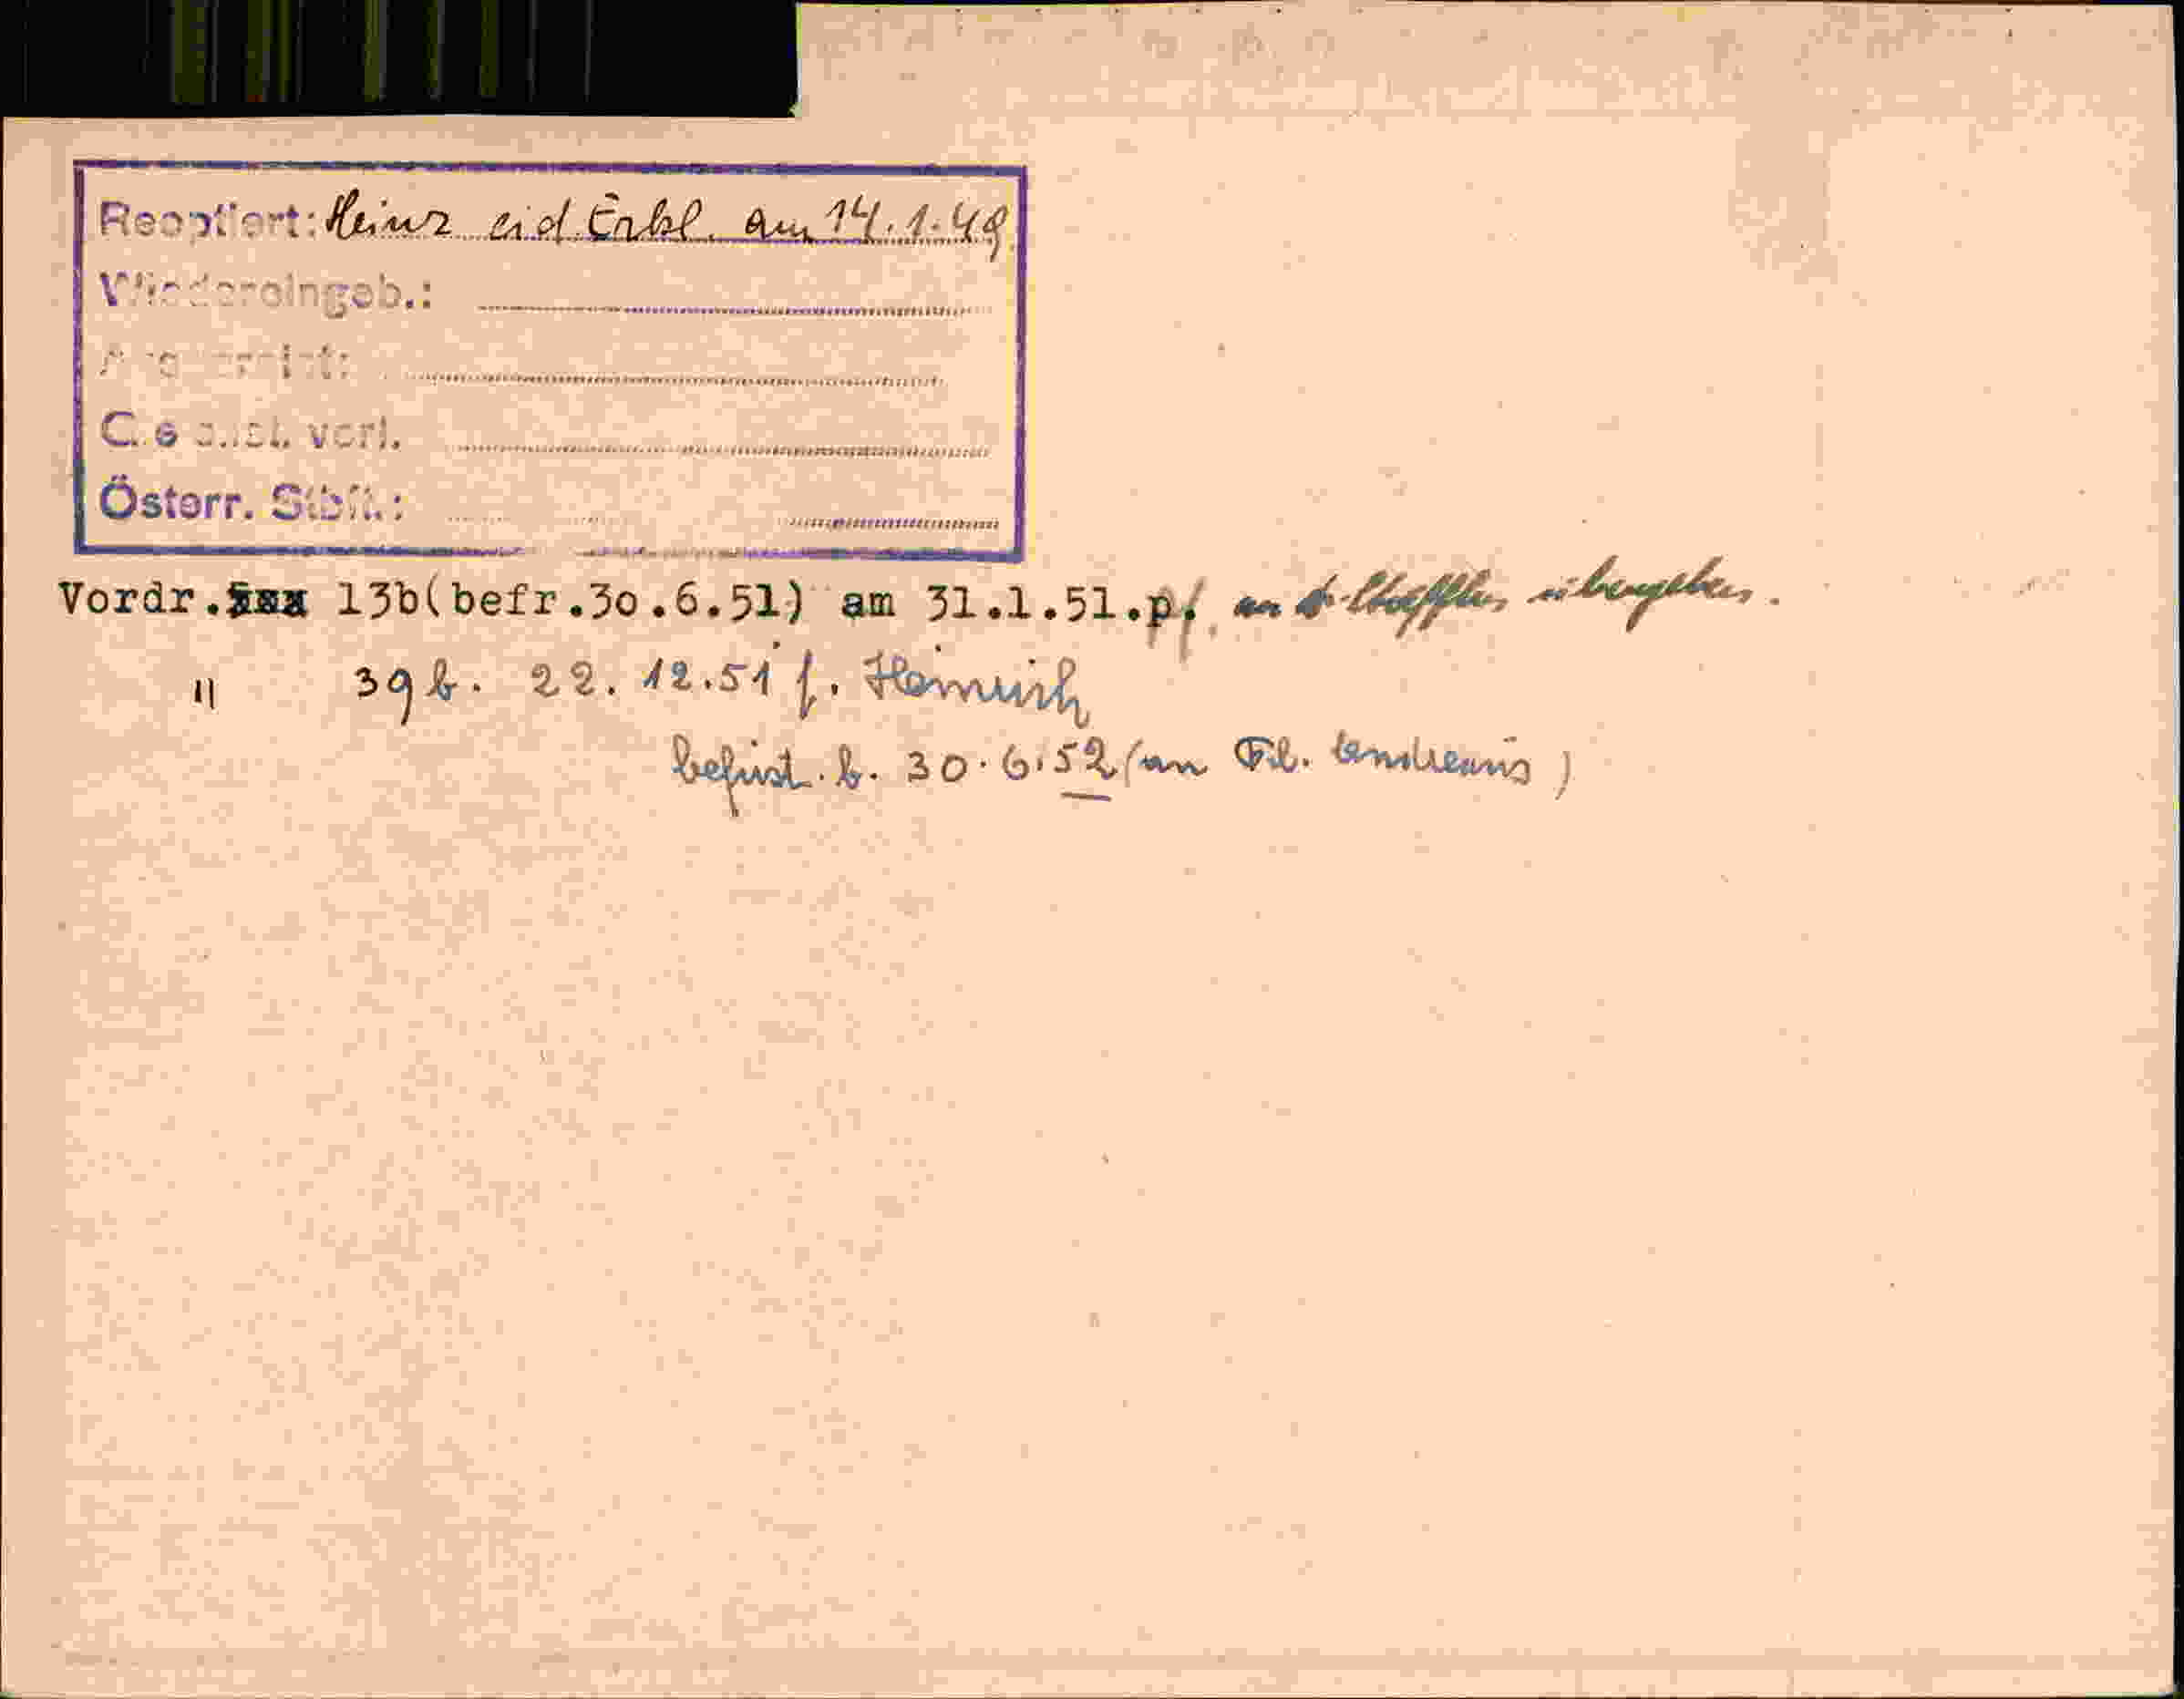 Reoptiert: Heinz eid. Erkl. am 14.1.49
Wiedereingeb.:
Österr. Stbft.:
Vordr. 13b(befr.30.6.51) am 31.1.51.p. an übergeben.
" 39 b. 22.12.51 f. Heinrich
befrist. b. 30.6.52 (an Frl. )